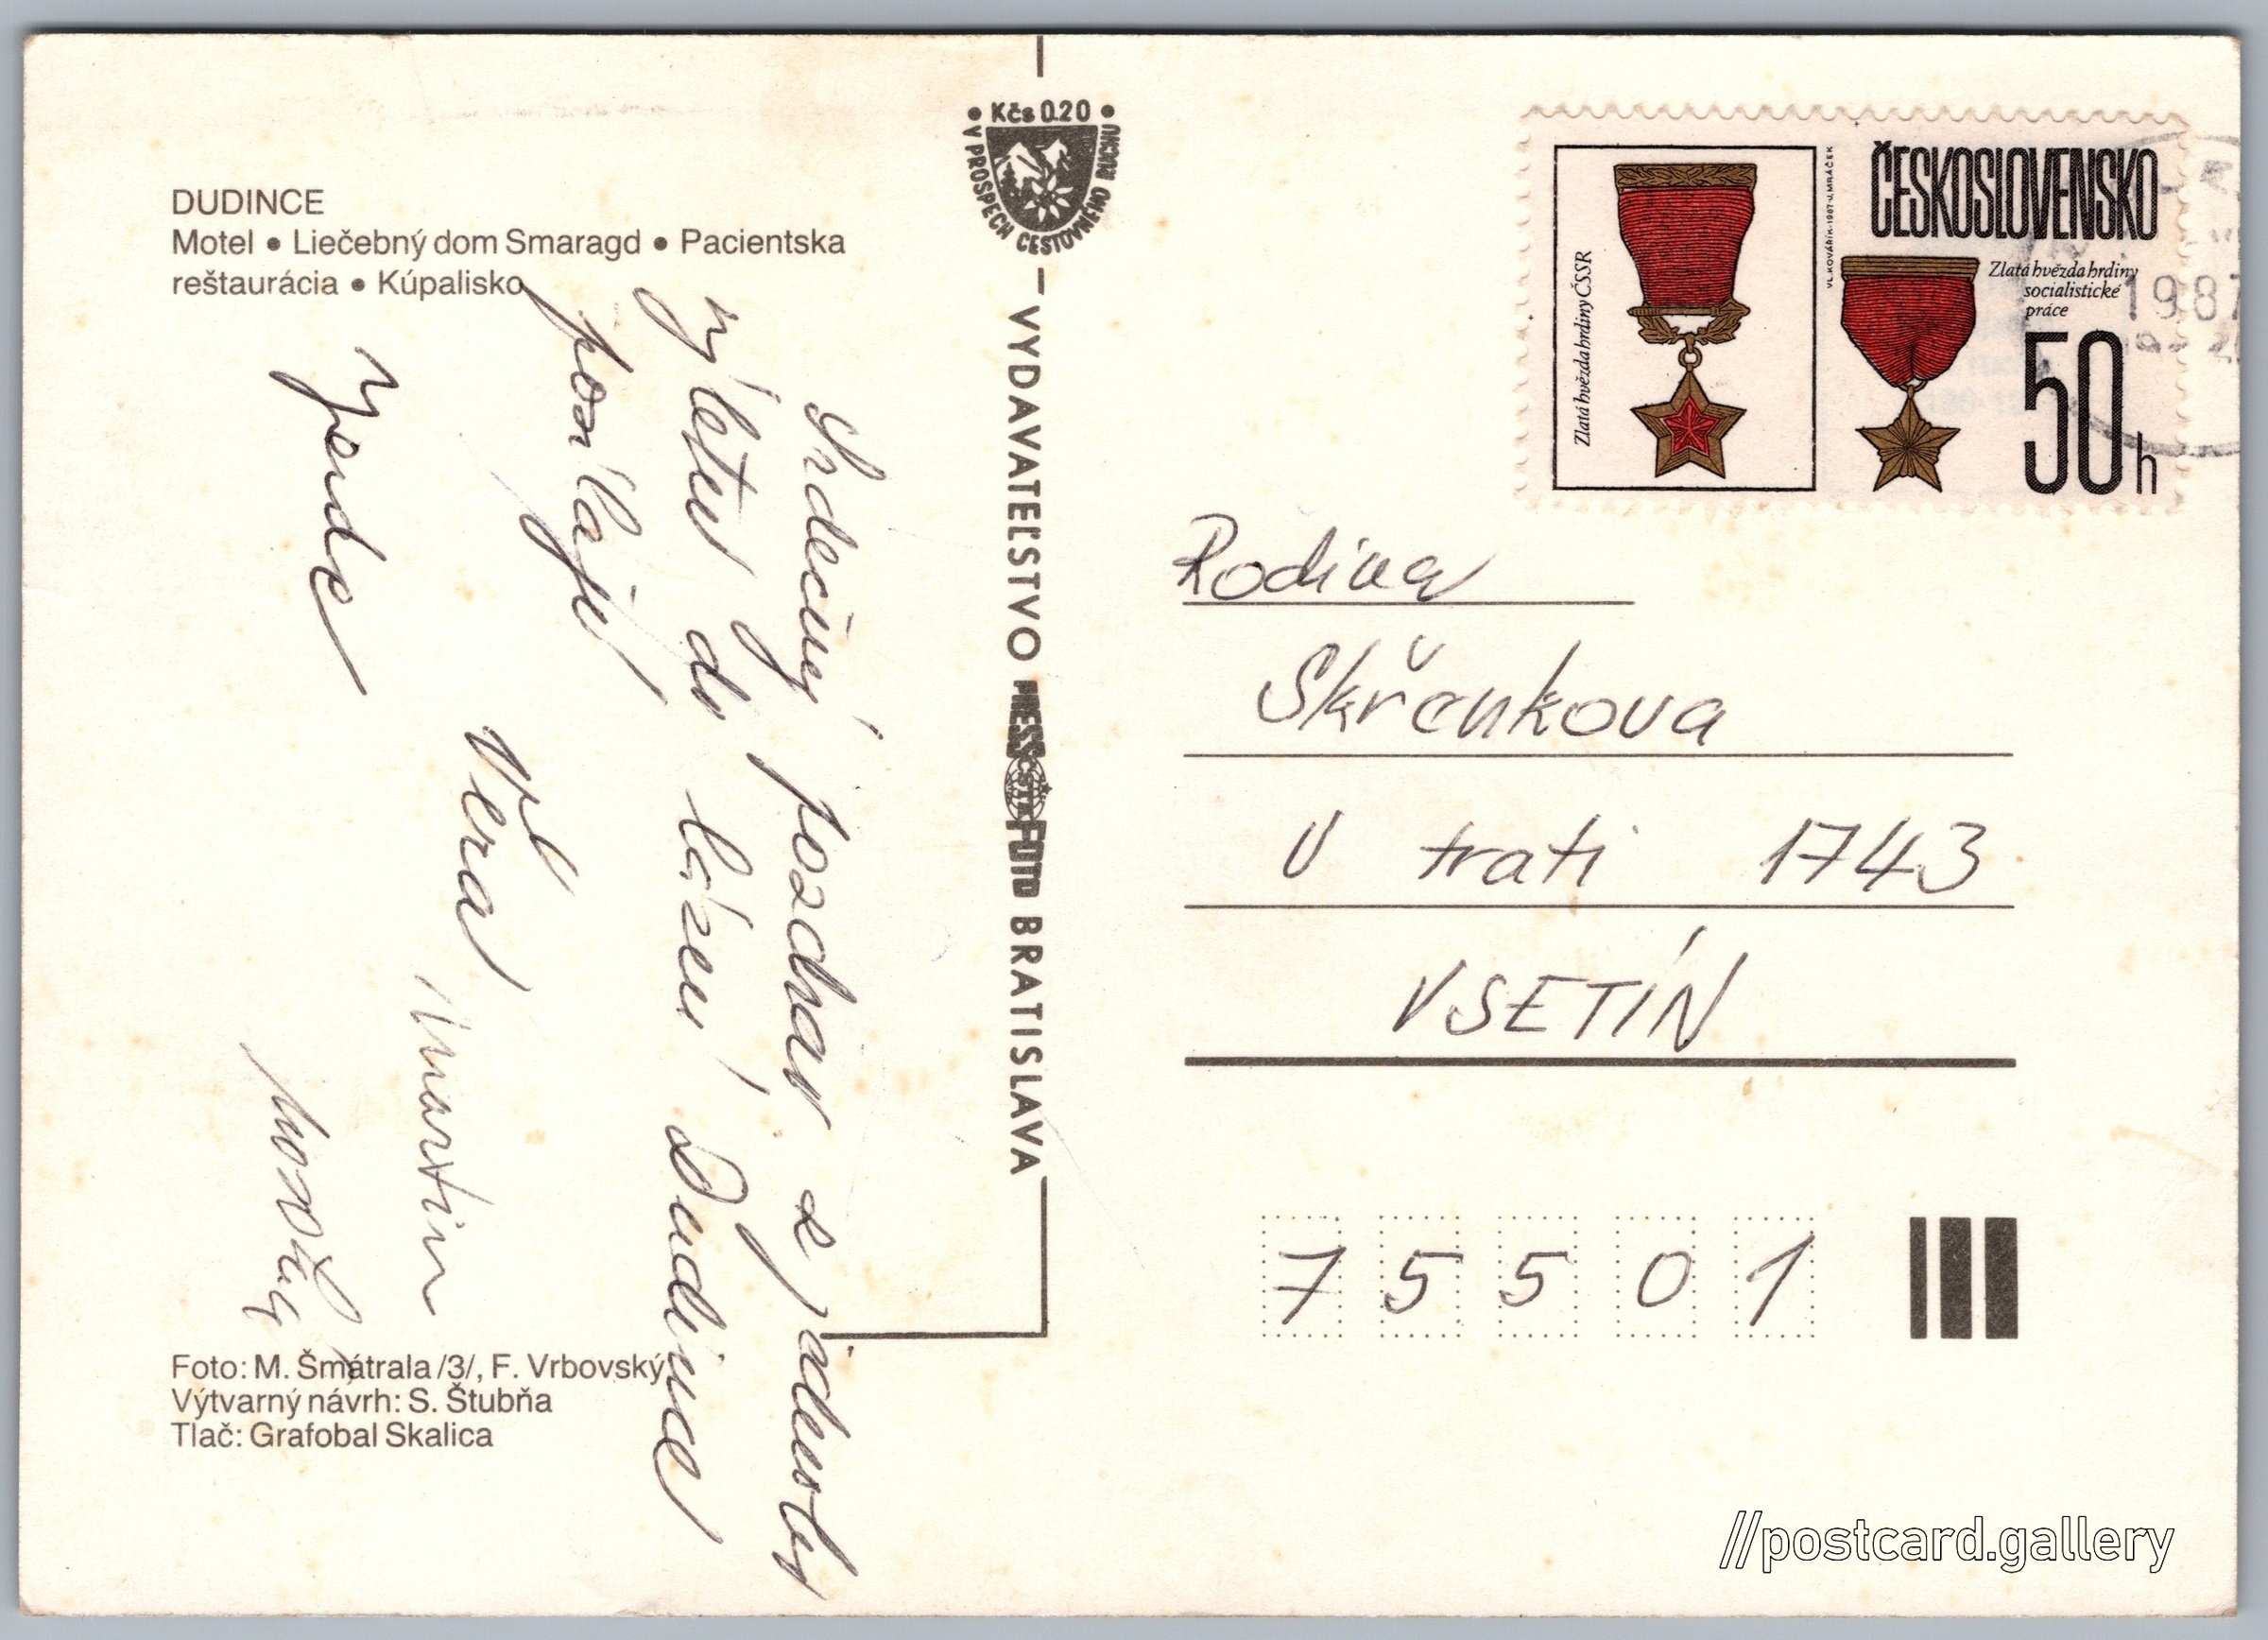 DUDINCE
Motel • Liečebný dom Smaragd • Pacientska
reštaurácia • Kúpalisko
Srdečný pozdrav z jádersty
výletu do lázní Dudince
posílají
Věra
Martin
Foto: M. Šmátrala /3/, F. Vrbovský
Výtvarný návrh: S. Štubňa
Tlač: Grafobal Skalica
• Kčs 0.20 •
V PROSPECH CESTOVNÉHO RUCHU
VYDAVATEĽSTVO PRESSFOTO BRATISLAVA
ČSTK
ČESKOSLOVENSKO
Zlatá hvězda hrdiny ČSSR
VL. KOVÁŘÍK · 1987 · J. MRÁČEK
Zlatá hvězda hrdiny
socialistické
práce
50 h
1987
Rodina
Skřenkova
U trati 1743
VSETÍN
75501
//postcard.gallery